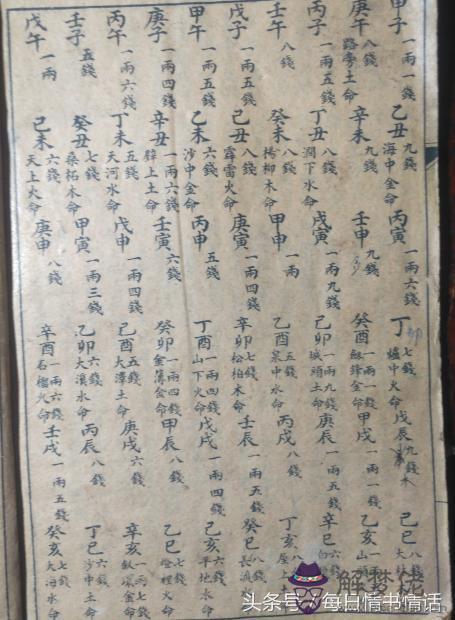 甲子 一兩一錢 乙丑 九錢 海中金命 丙寅 一兩六錢 丁卯 七錢 爐中火命 戊辰 九錢 木 己巳 八錢 大林
庚午 八錢 路旁土命 辛未 九錢 壬申 九錢 癸酉 一兩一錢 劍鋒金命 甲戌 一兩一錢 乙亥 山頭
丙子 一兩五錢 丁丑 八錢 澗下水命 戊寅 一兩九錢 己卯 一兩九錢 城頭土命 庚辰 一兩五錢 辛巳 六錢 白
壬午 八錢 癸未 八錢 楊柳木命 甲申 一兩 乙酉 五錢 泉中水命 丙戌 八錢 丁亥 八 屋上
戊子 一兩五錢 己丑 八錢 霹雷火命 庚寅 一兩四錢 辛卯 七錢 松柏木命 壬辰 一兩五錢 癸巳 八錢 長流
甲午 一兩五錢 乙未 六錢 沙中金命 丙申 五錢 丁酉 一兩四錢 山下火命 戊戌 一兩四錢 己亥 六錢 平地木命
庚子 一兩四錢 辛丑 一兩六錢 壁上土命 壬寅 六錢 癸卯 一兩四錢 金簿金命 甲辰 八錢 乙巳 七錢 燈裡火命
丙午 一兩六錢 丁未 五錢 天河水命 戊申 一兩四錢 己酉 五錢 大澤土命 庚戌 六錢 辛亥 一兩七錢 釵環金命
壬子 五錢 癸丑 七錢 桑柘木命 甲寅 一兩三錢 乙卯 六錢 大溪水命 丙辰 八錢 丁巳 六錢 沙中土命
戊午 一兩 己未 六錢 天上火命 庚申 八錢 辛酉 一兩六錢 石榴火命 壬戌 一兩五錢 癸亥 七錢 大海水命
解夢佬
头条号/每日情书情话